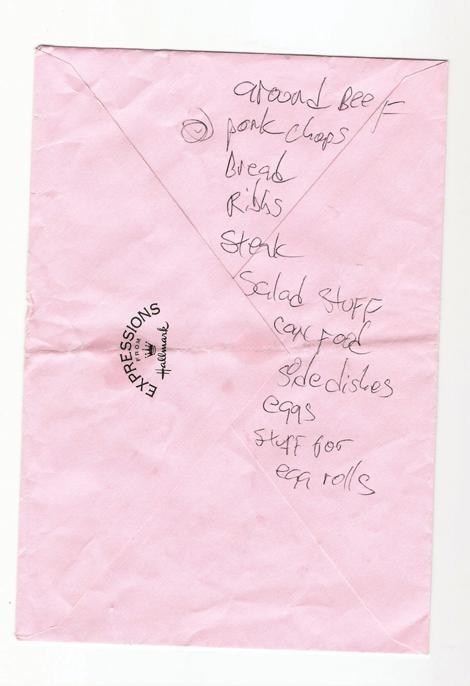 around Beef
pork chops
Bread
Ribs
Steak
Salad Stuff
can food
Side dishes
eggs
Stuff for
egg rolls
EXPRESSIONS
FROM
Hallmark